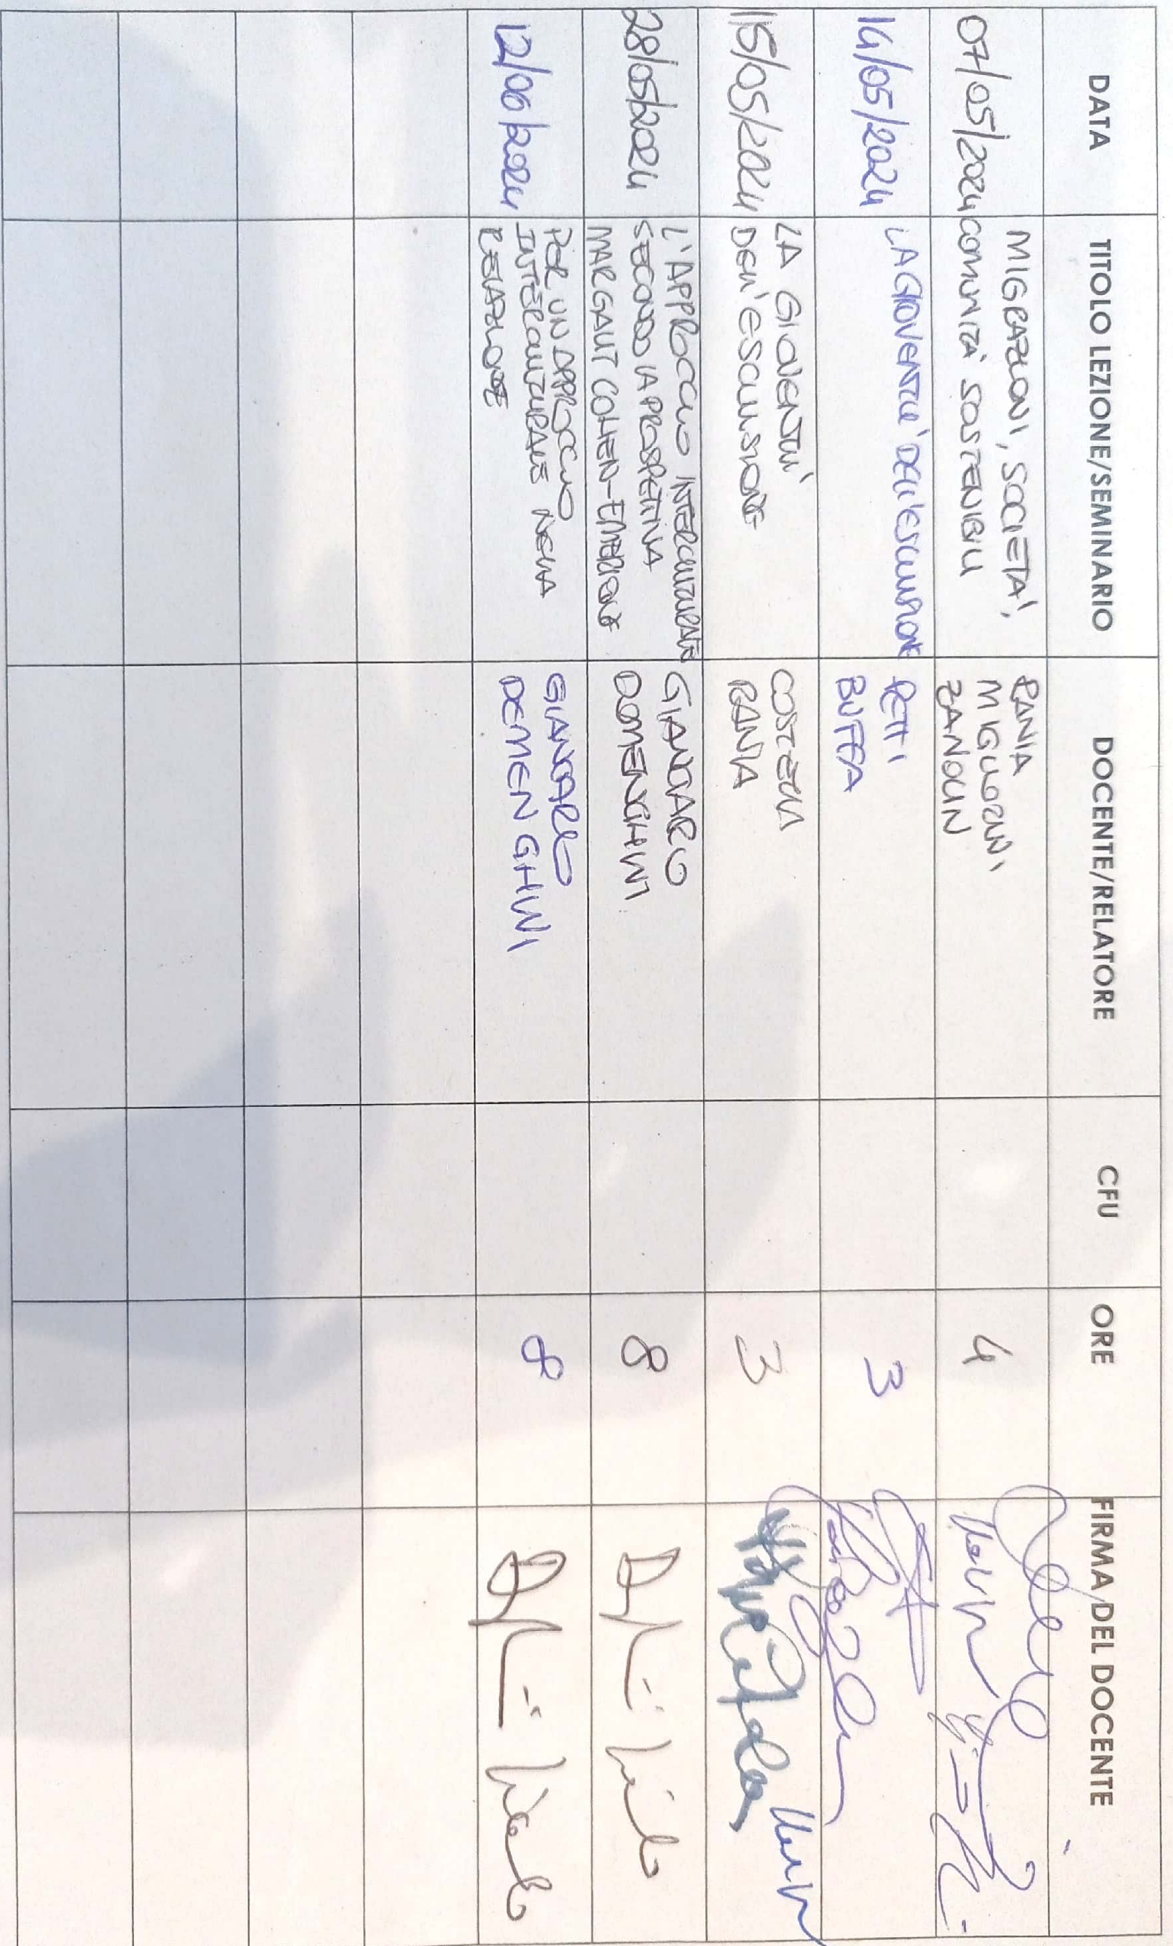 DATA TITOLO LEZIONE/SEMINARIO DOCENTE/RELATORE CFU ORE FIRMA DEL DOCENTE
07/05/2024
MIGRAZIONI, SOCIETA',
COMUNITÀ SOSTENIBILI
RANIA
MIGLIORINI
ZANOLIN
4
14/05/2024
LA GIOVENTU' DELL'ESCLUSIONE
PETTI
BUFFA
3
15/05/2024
LA GIOVENTU'
DELL'ESCLUSIONE
COSTELLA
RANIA
3
28/05/2024
L'APPROCCIO INTERCULTURALE
SECONDO LA PROSPETTIVA
MARGAUT COHEN-EMERIQUE
GIANCARLO
DOMENGHINI
8
12/06/2024
PER UN APPROCCIO
INTERCULTURALE NELLA
RELAZIONE
GIANCARLO
DEMENGHINI
8